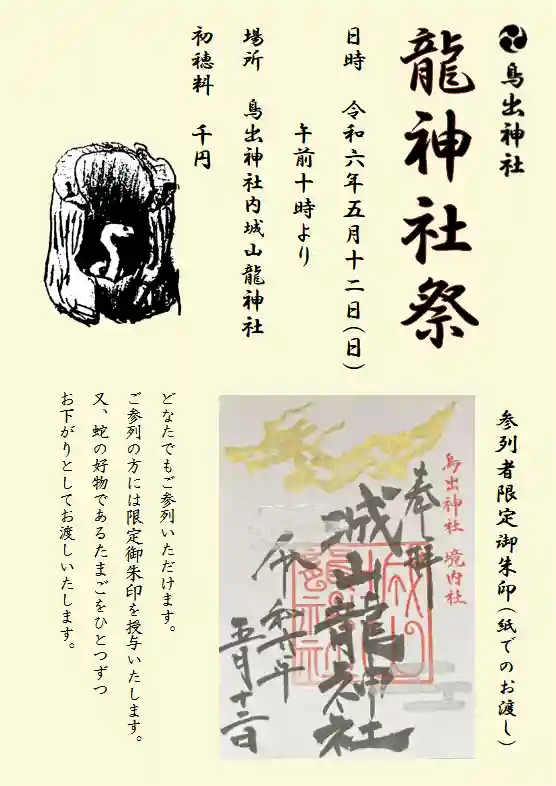 鳥出神社
龍神社祭
日時　令和六年五月十二日(日)
午前十時より
場所　鳥出神社内城山龍神社
初穂料　千円
参列者限定御朱印(紙でのお渡し)
鳥出神社　境内社
奉拝
城山龍神社
令和六年
五月十二日
どなたでもご参列いただけます。
ご参列の方には限定御朱印を授与いたします。
又、蛇の好物であるたまごをひとつずつ
お下がりとしてお渡しいたします。